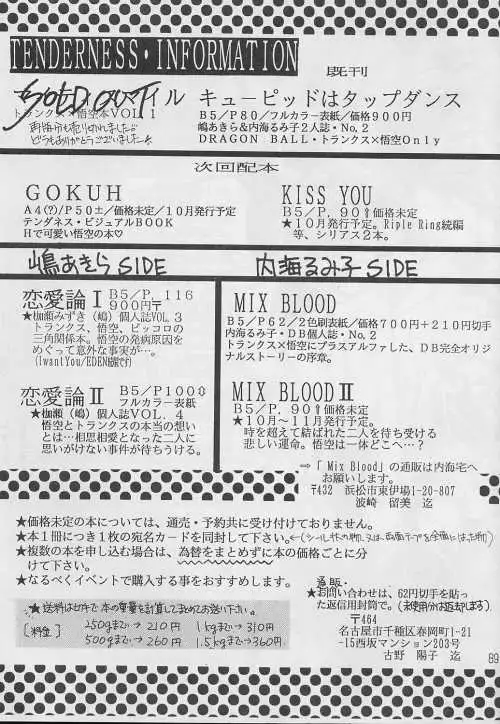 TENDERNESS・INFORMATION
既刊
SOLD OUT
イル
トランクス×悟空本VOL. 1
再販分も売り切れました
どうもありがとうございました
キューピッドはタップダンス
B5/P80/フルカラー表紙/価格900円
嶋あきら&内海るみ子2人誌・No.2
DRAGON BALL・トランクス×悟空Only
次回配本
GOKUH
A4(?)/P50±/価格未定/10月発行予定
テンダネス・ビジュアルBOOK
Hで可愛い悟空の本♡
KISS YOU
B5/P. 90⇧価格未定
★10月発行予定。Riple Ring続編
等、シリアス2本。
嶋あきらSIDE
内海るみ子SIDE
恋愛論Ⅰ B5/P. 116
900円〒
★枷瀬みずき(嶋)個人誌VOL. 3
トランクス、悟空、ピッコロの
三角関係本。悟空の発病原因を
めぐって意外な事実が…。
(IwantYou/EDEN続編です)
恋愛論Ⅱ B5/P100⇕
フルカラー表紙
★枷瀬(嶋)個人誌VOL. 4
悟空とトランクスの本当の想い
とは…相思相愛となった二人に
思いがけない事件が待ちうける。
MIX BLOOD
B5/P62/2色刷表紙/価格700円+210円切手
内海るみ子・DB個人誌・No.2
トランクス×悟空にプラスアルファした、DB完全オリ
ジナルストーリーの序章。
MIX BLOODⅡ
B5/P. 90⇧価格未定
★10月~11月発行予定。
時を超えて結ばれた二人を待ち受ける
悲しい運命。悟空は一体どこへ…?
⇒「Mix Blood」の通販は内海宅へ
お願いします。
〒432 浜松市東伊場1-20-807
波崎 留美 迄
★価格未定の本については、通売・予約共に受け付けておりません。
★本1冊につき1枚の宛名カードを同封して下さい。←(シール状の物、又は両面テープを全面にはった物)
★複数の本を申し込む場合は、為替をまとめずに本の価格ごとに分
けて下さい。
★なるべくイベントで購入する事をおすすめします。
★送料は切手で本の重量を計算してまとめてお送り下さい。
[料金] 250gまで→210円 1kgまで→310円
500gまで→260円 1.5kgまで→360円
通販・
★お問い合わせは、62円切手を貼っ
た返信用封筒で。(未使用分は返却します)
〒464
名古屋市千種区春岡町1-21
-15西坂マンション203号
古野 陽子 迄
69